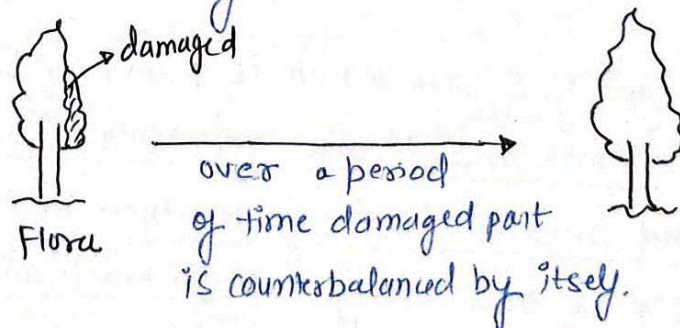 damaged
over a period
of time damaged part
Flora
is counterbalanced by itself.